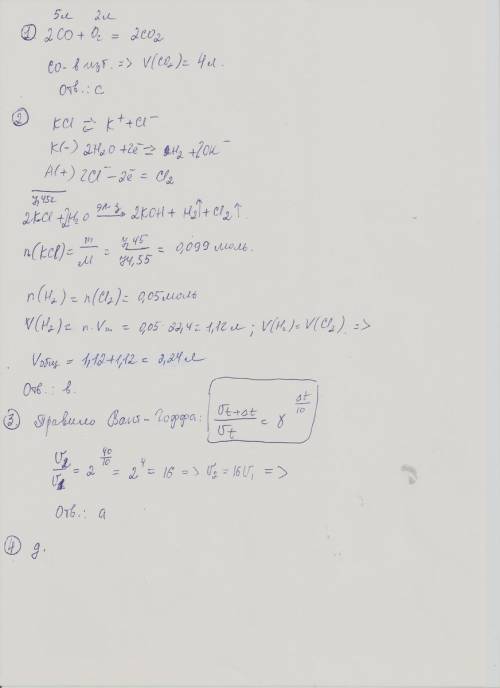 5л 2л
① 2CO + O₂ = 2CO₂
CO - в изб. => V(CO₂) = 4л.
Отв.: c
② KCl ⇄ K⁺ + Cl⁻
K(-) 2H₂O + 2ē = H₂ + 2OH⁻
A(+) 2Cl⁻ - 2ē = Cl₂
7,45г
2KCl + 2H₂O эл-з → 2KOH + H₂↑ + Cl₂↑
n(KCl) = m/M = 7,45/74,55 = 0,099 моль.
n(H₂) = n(Cl₂) = 0,05 моль
V(H₂) = n·Vm = 0,05·22,4 = 1,12 л; V(H₂) = V(Cl₂) =>
Vобщ = 1,12 + 1,12 = 2,24 л
Отв.: в.
③ Правило Вант-Гоффа: υt+Δt/υt = γ^Δt/10
υ₂/υ₁ = 2^40/10 = 2⁴ = 16 => υ₂ = 16υ₁ =>
Отв.: a
④ д.